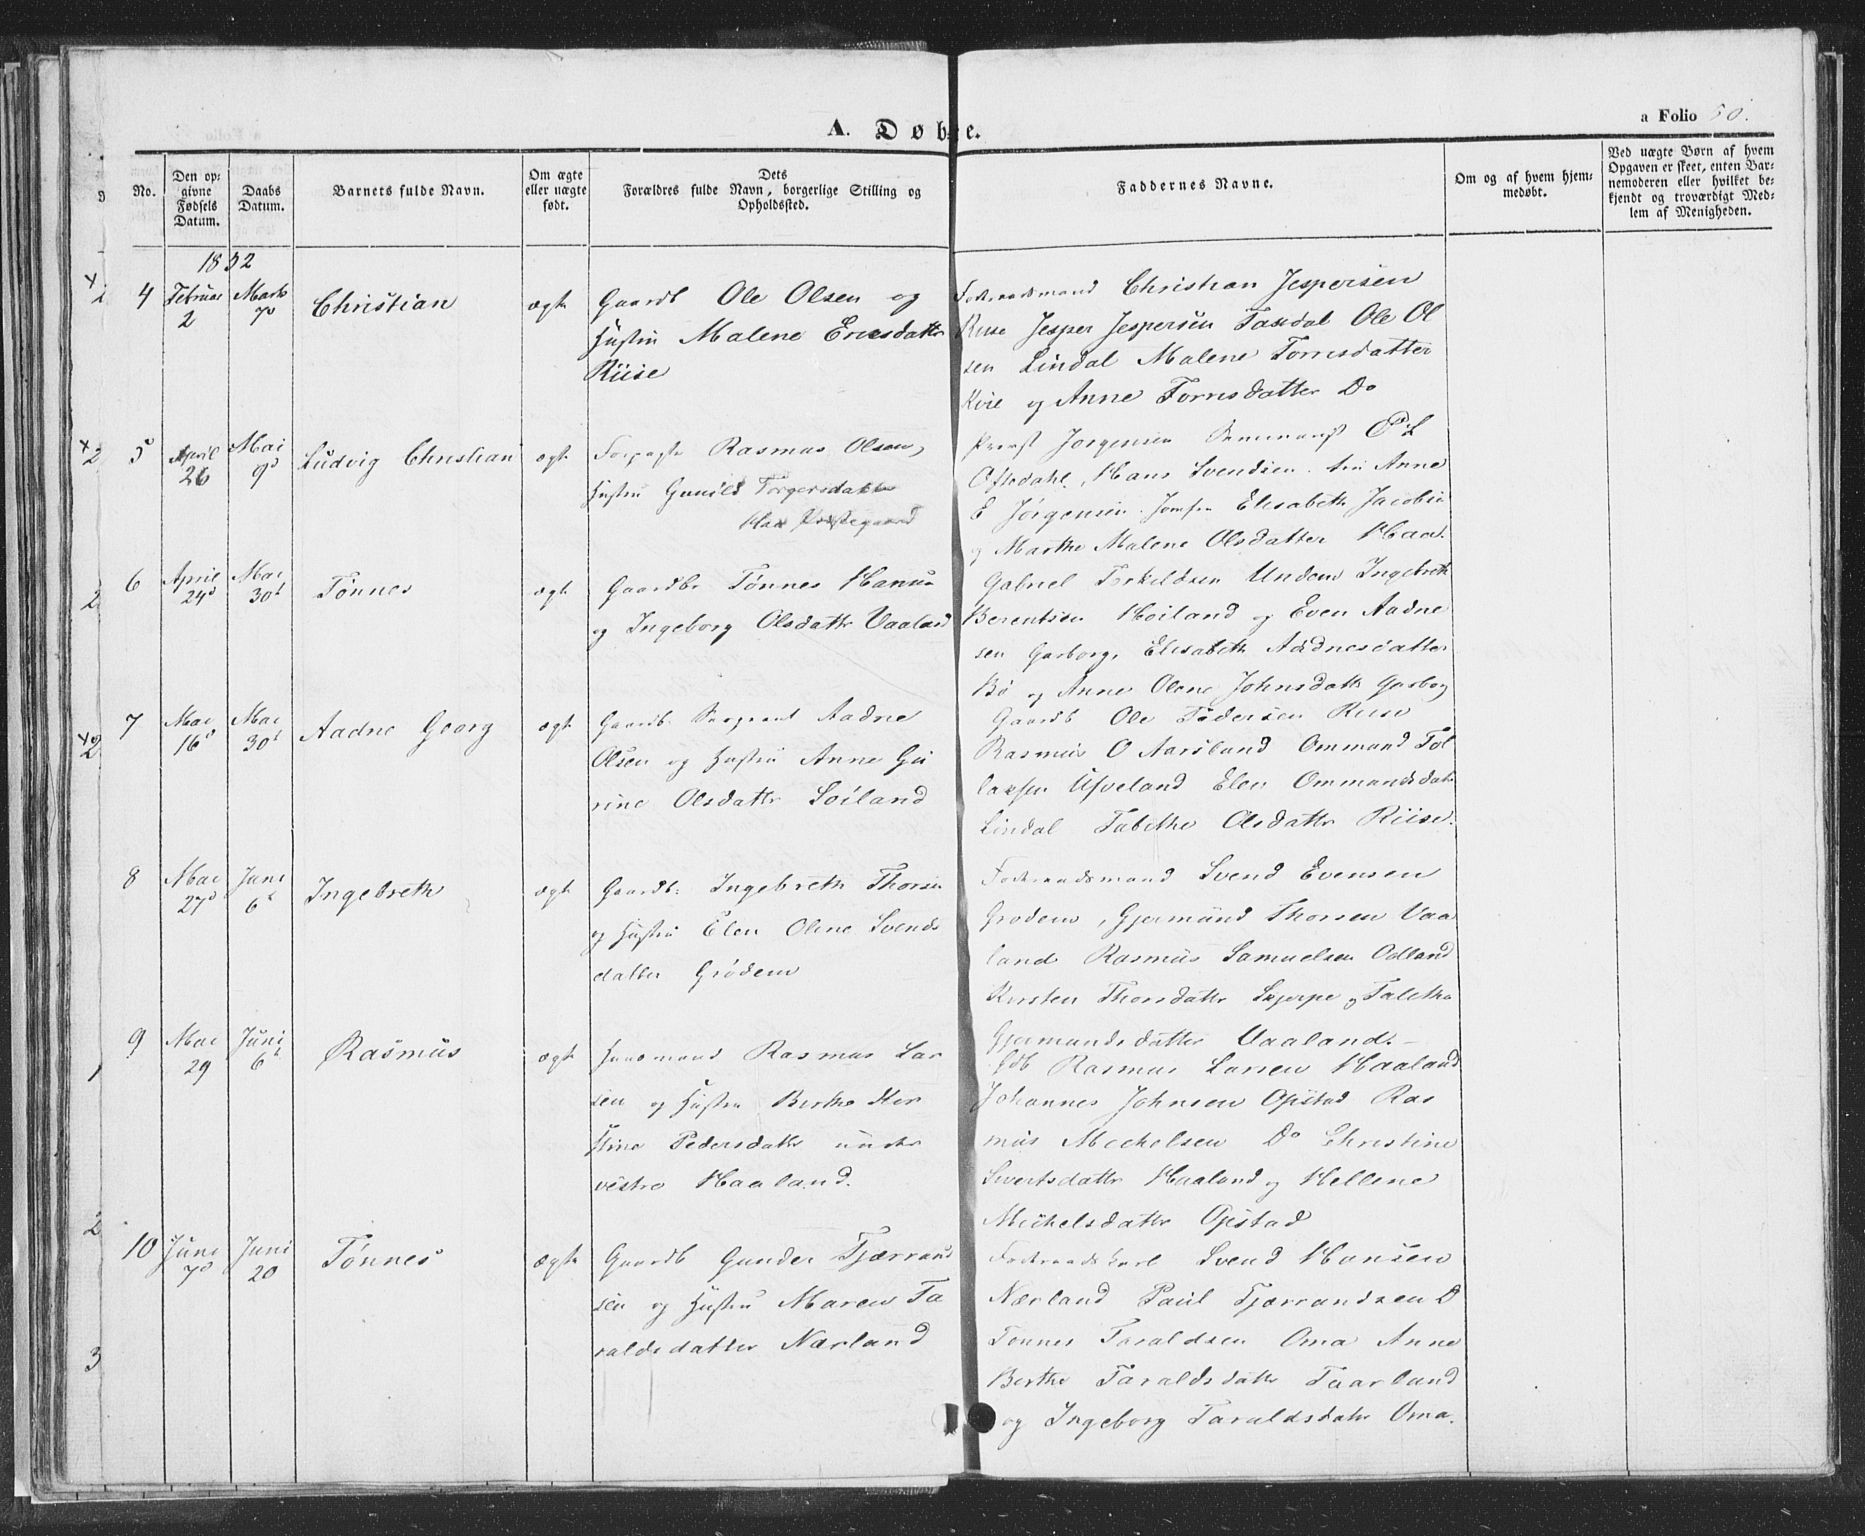 A. Døbte.
a Folio 50.
No.
Den opgivne Fødsels Datum.
Daabs Datum.
Barnets fulde Navn.
Om ægte eller uægte født.
Dets Forældres fulde Navn, borgerlige Stilling og Opholdssted.
Faddernes Navne.
Om og af hvem hjemmedøbt.
Ved uægte Børn af hvem Opgaven er skeet, enten Barnemoderen eller hvilket bekjendt og troværdigt Medlem af Menigheden.
1852
4 Februar 2 Marts 7d Christian ægte
Gaardb Ole Olsen og
Hustru Malene Ericsdatter
Riise
Foderaadsmand Christian Jespersen
Riise Jesper Jespersen Taxdal Ole Ol
sen Lindal Malene Torrisdatter
Kvie og Anne Torrisdatter Do
5 April 26 Mai 9d Ludvig Christian ægte
Forpagter Rasmus Olsen,
Hustru Gunild Torgersdatter
Haa Præstegaard
Provst Jørgensen Seminarist P L
Oftedahl, Hans Svendsen. Fru Anne
E Jørgensen. Jomfru Elisabeth Jacobsen
og Marthe Malene Olsdatter Haa.
6 April 24d Mai 30te Tønnes ægte
Gaardbr Tønnes Hansen
og Ingeborg Olsdattr Vaaland
Gabriel Torkildsen Undem Ingebreth
Berentsen Høiland og Even Aadne
sen Garborg, Elisabeth Aadnesdatter
Bø og Anne Olene Johnsdattr Garborg
7 Mai 16d Mai 30te Aadne Georg ægte
Gaardb. Sergeant Aadne
Olsen og Hustru Anne Gu
rine Olsdattr Loiland
Gaardb Ole Pedersen Riise
Rasmus O Aarsland Ommund Tol
laxsen Ueland Elen Ommundsdatr
Lindal Tabithe Olsdattr Riise.
8 Mai 27d Juni 6te Ingebreth ægte
Gaardb: Ingebreth Thorsen
og Hustru Elen Oline Svends
datter Grødem
Foderaadsmand Svend Evensen
Grødem, Gjermund Thorsen Vaa
land Rasmus Samuelsen Odland
Kirsten Thorsdattr Skjerpe og Talitha
Gjermundsdatter Vaaland.
9 Mai 29 Juni 6te Rasmus ægte
Huusmand Rasmus Lar
sen og Hustru Berthe Kir
stine Pedersdattr under
vestre Haaland.
Gdb Rasmus Larsen Haaland
Johannes Johnsen Opstad Ras
mus Michelsen Do Christine
Sivertsdattr Haaland og Hellene
Michelsdattr Opstad
10 Juni 7d Juni 20 Tønnes ægte
Gaardb Gunder Tjærrand
sen og Hustru Maren Ta
raldsdatter Nærland
Foderaadskarl Svend Hansen
Nærland Paul Tjerrandsen D
Tønnes Taraldsen Oma Anne
Berthe Taraldsdattr Taarland
og Ingeborg Taraldsdatr Oma.